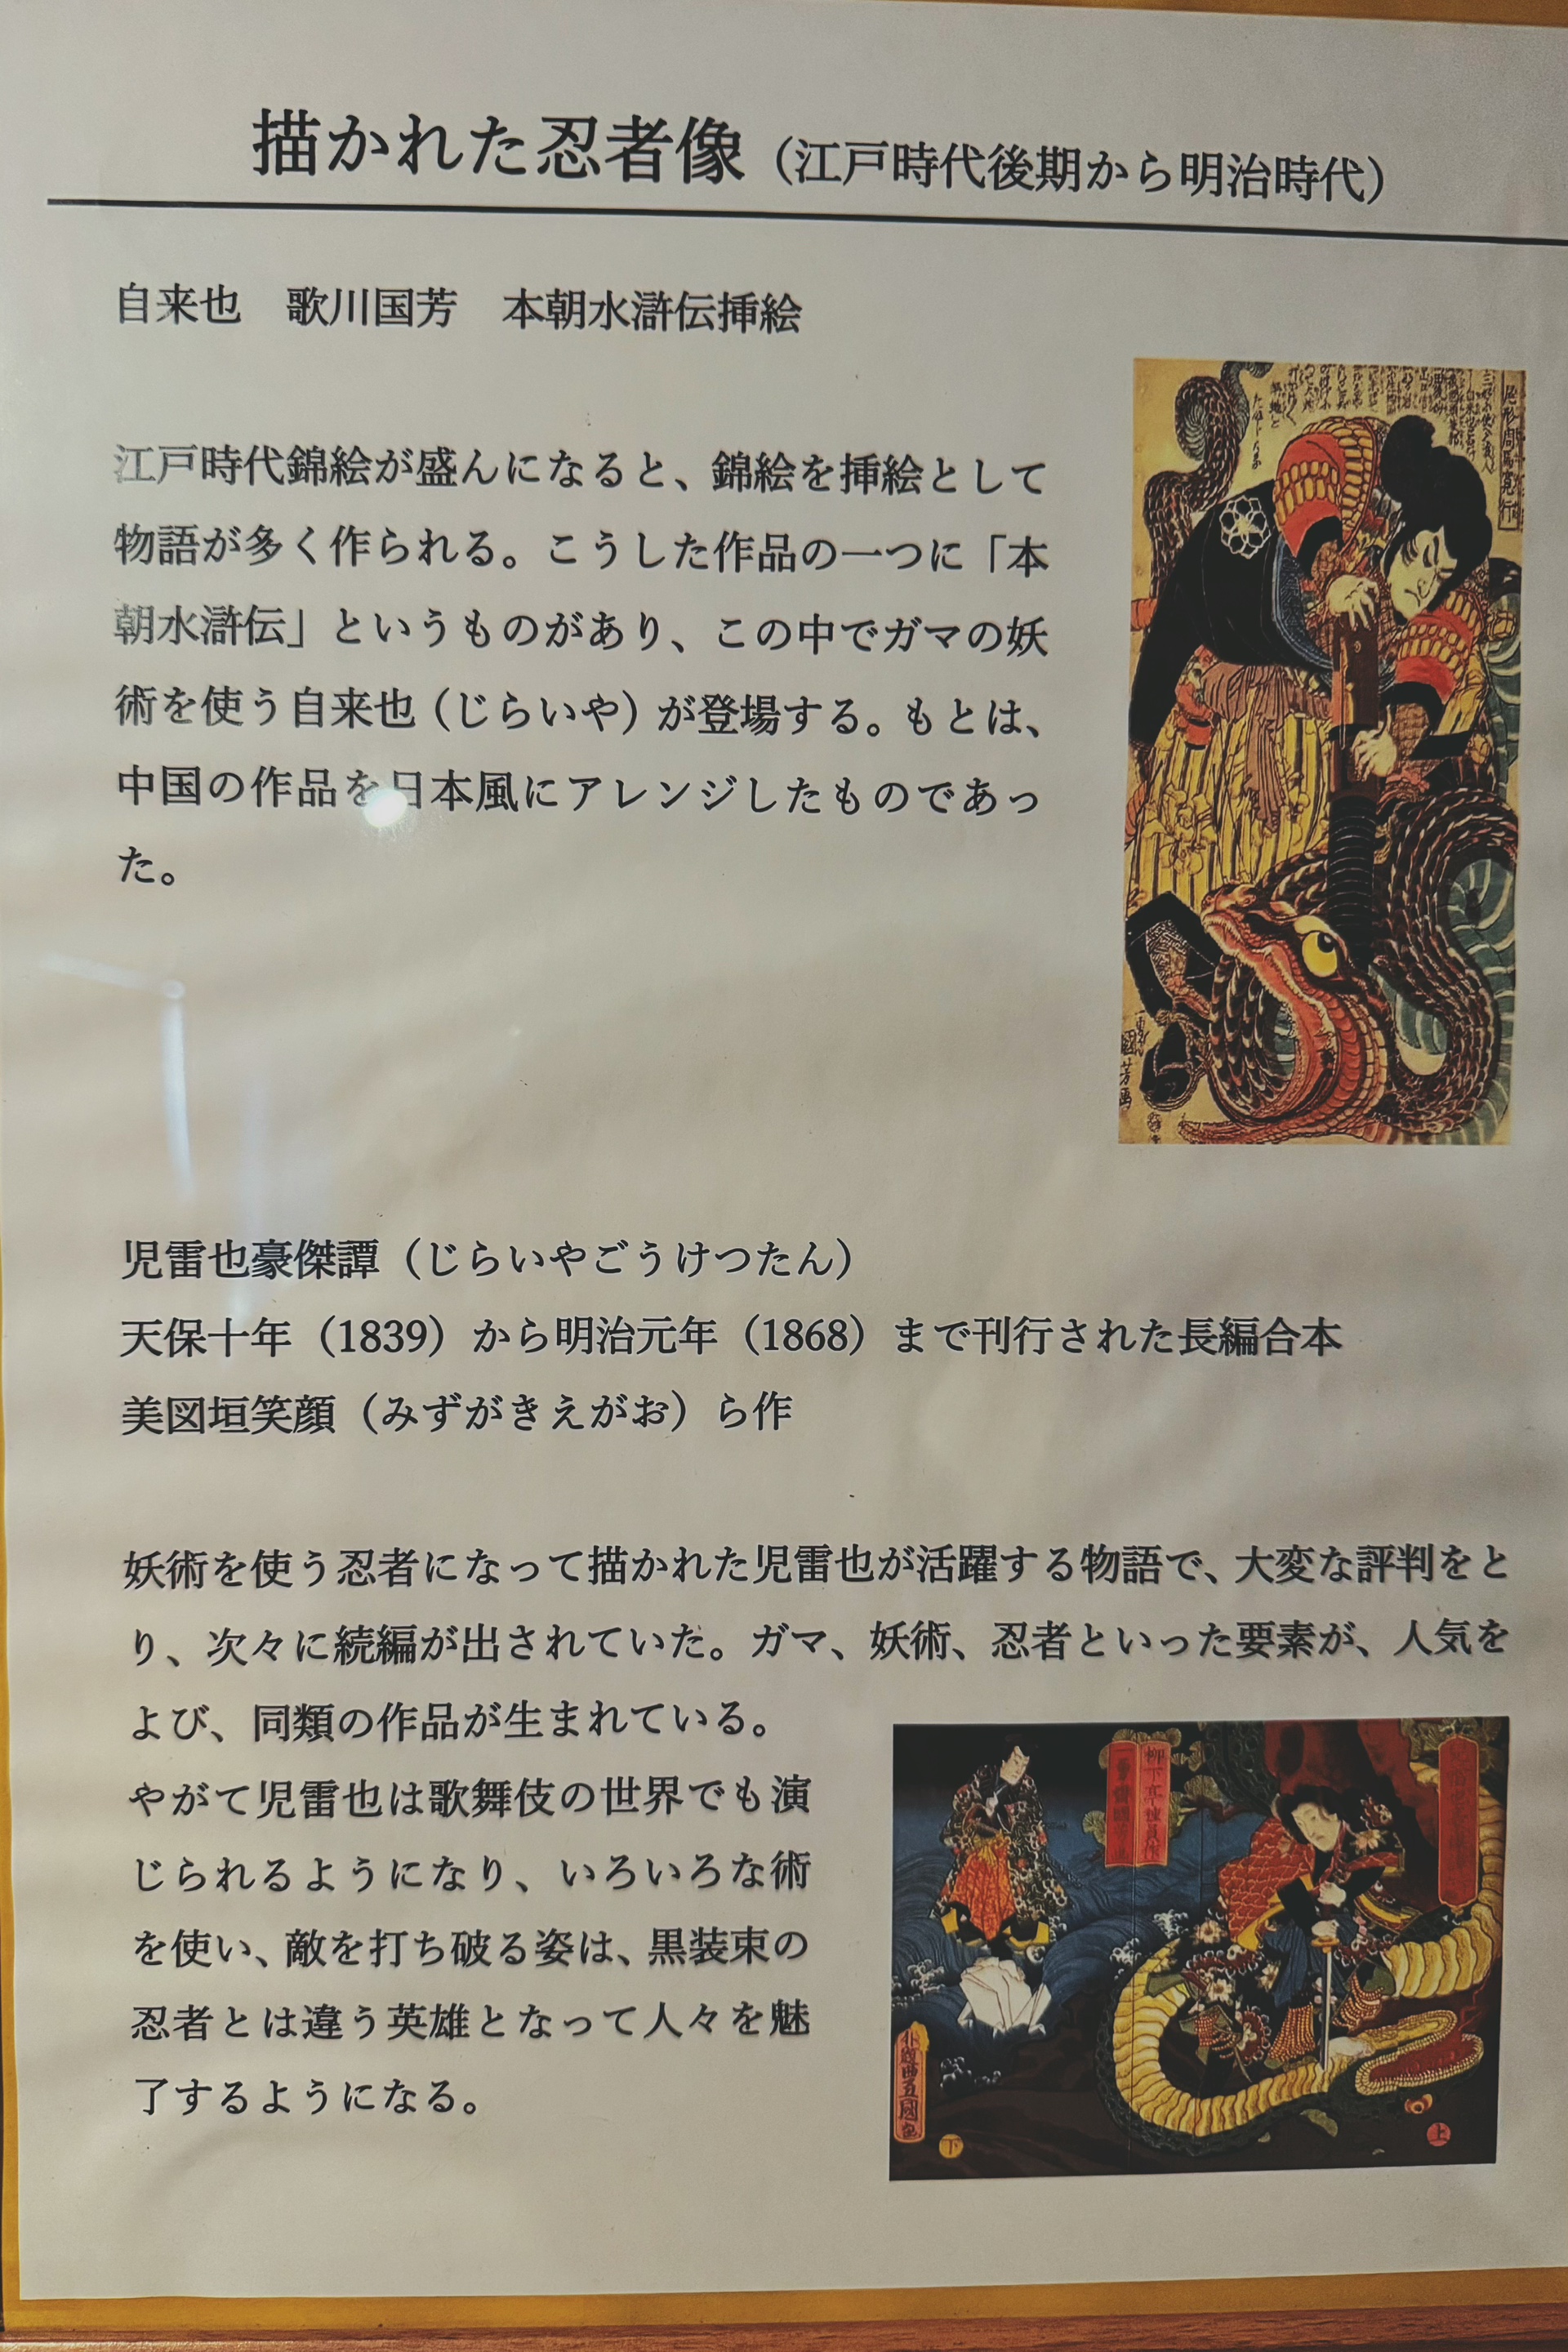 描かれた忍者像（江戸時代後期から明治時代）
自来也　歌川国芳　本朝水滸伝挿絵
江戸時代錦絵が盛んになると、錦絵を挿絵として
物語が多く作られる。こうした作品の一つに「本
朝水滸伝」というものがあり、この中でガマの妖
術を使う自来也（じらいや）が登場する。もとは、
中国の作品を日本風にアレンジしたものであっ
た。
尾形周馬寛行
國芳画
児雷也豪傑譚（じらいやごうけつたん）
天保十年（1839）から明治元年（1868）まで刊行された長編合本
美図垣笑顔（みずがきえがお）ら作
妖術を使う忍者になって描かれた児雷也が活躍する物語で、大変な評判をと
り、次々に続編が出されていた。ガマ、妖術、忍者といった要素が、人気を
よび、同類の作品が生まれている。
やがて児雷也は歌舞伎の世界でも演
じられるようになり、いろいろな術
を使い、敵を打ち破る姿は、黒装束の
忍者とは違う英雄となって人々を魅
了するようになる。
上
下